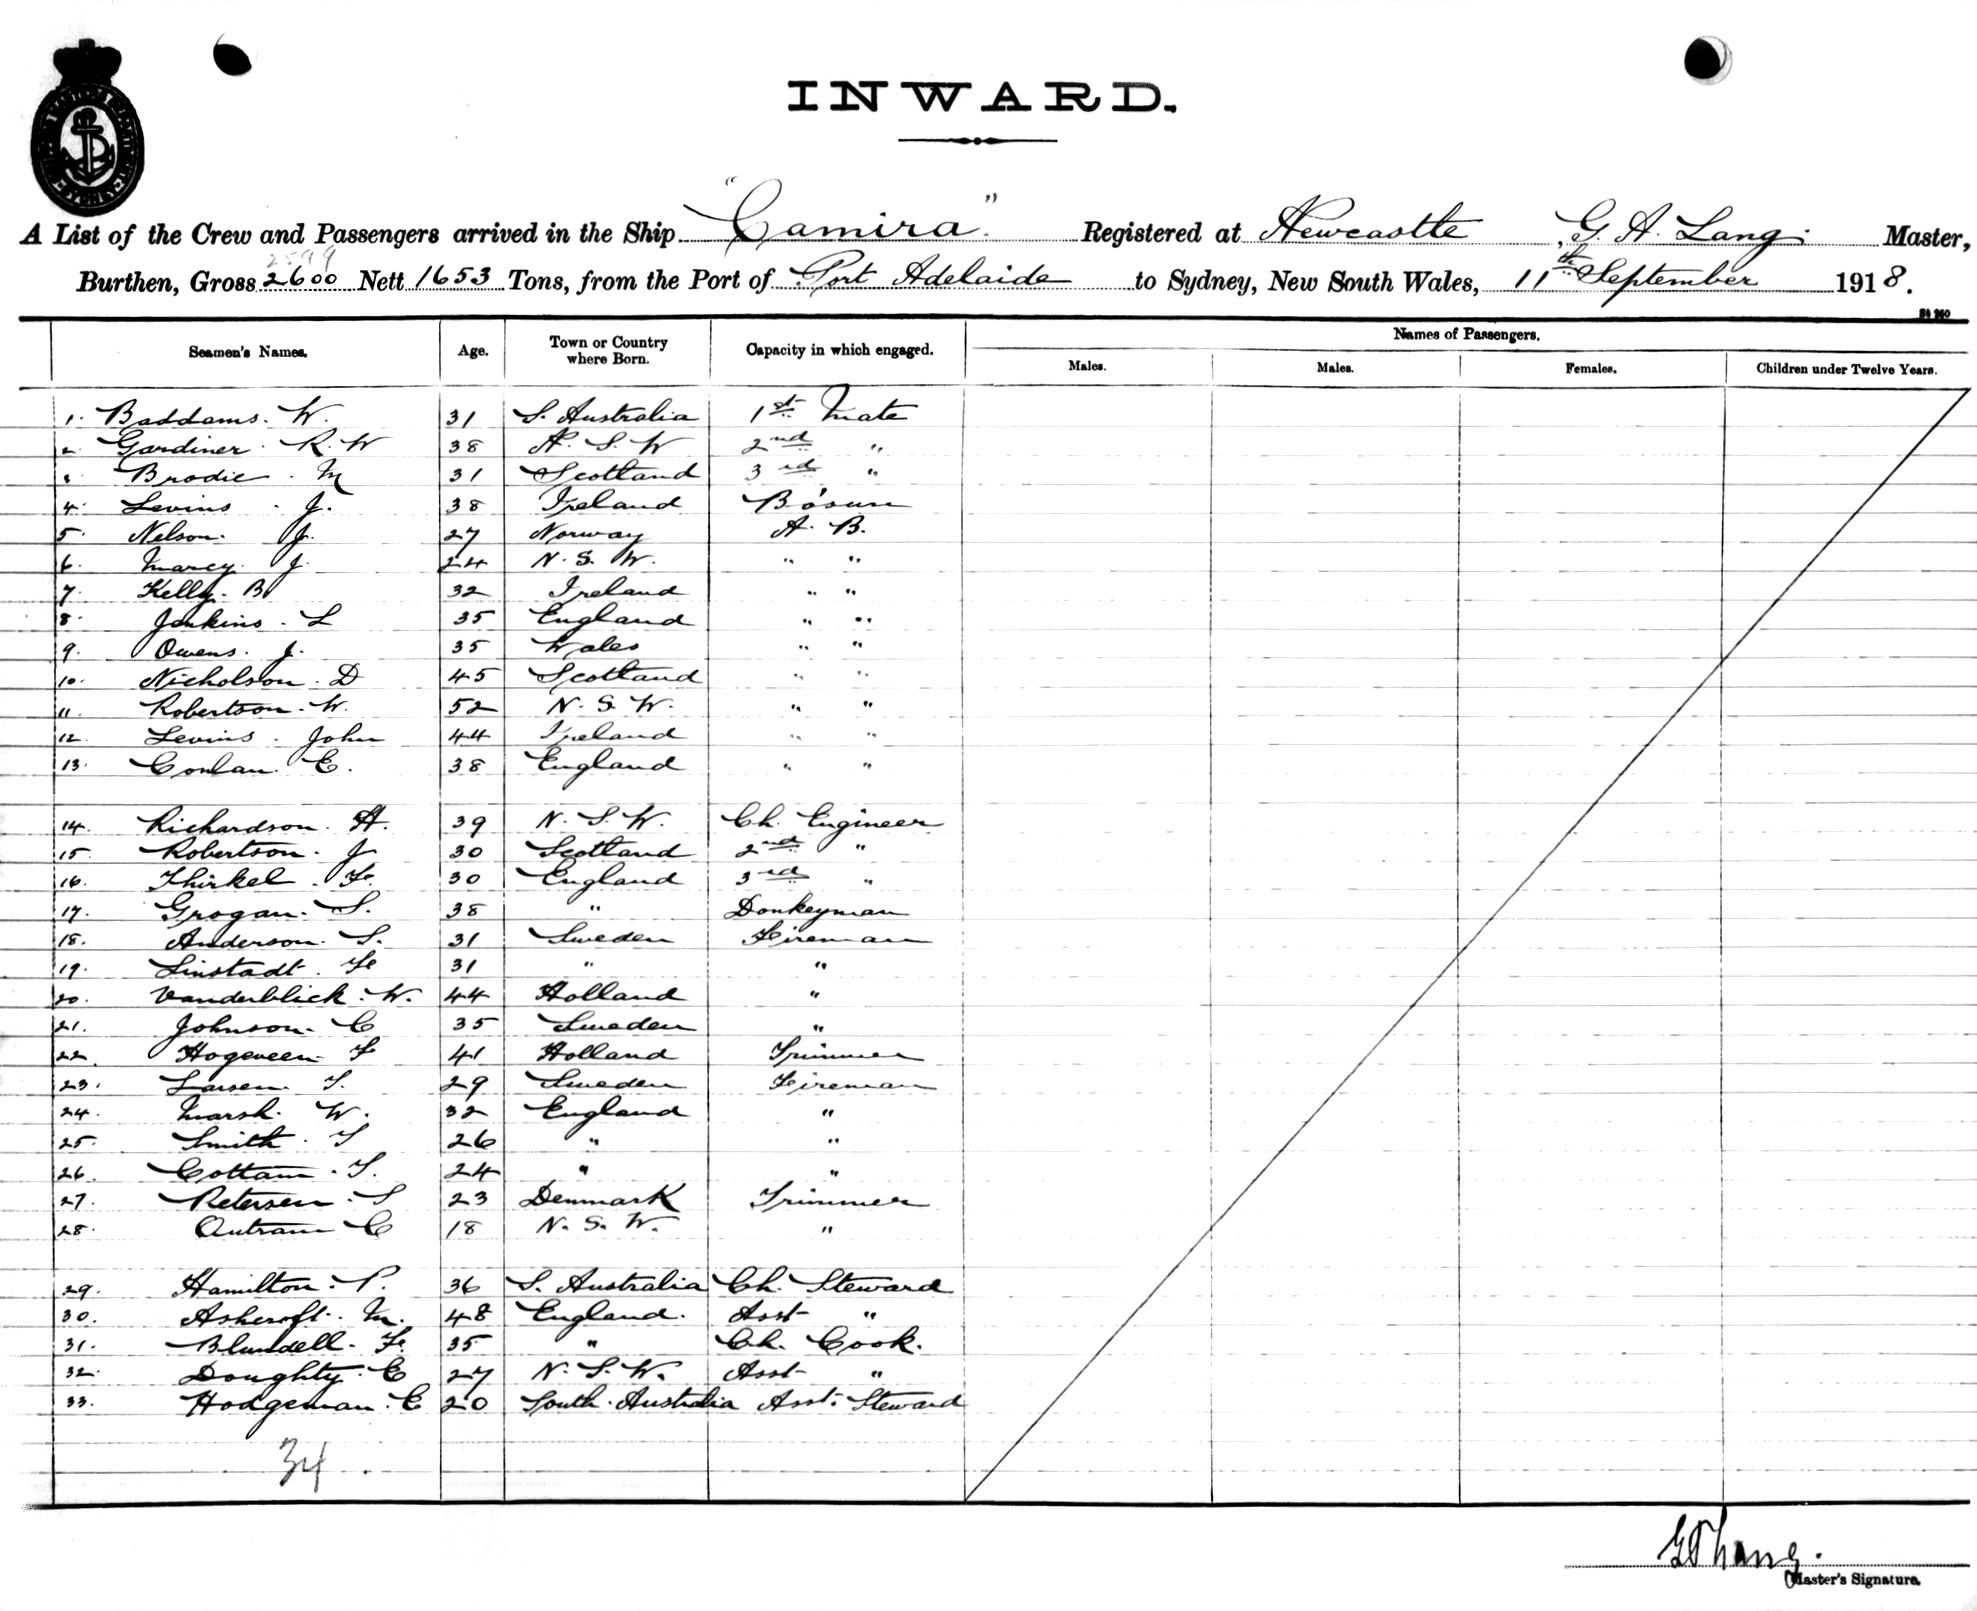 INWARD.
A List of the Crew and Passengers arrived in the Ship "Camira" Registered at Newcastle G. A. Lang. Master,
2599
Burthen, Gross 2600 Nett 1653 Tons, from the Port of Port Adelaide to Sydney, New South Wales, 11th September 1918.
Names of Passengers.
Seamen's Names. Age. Town or Country where Born. Capacity in which engaged. Males. Males. Females. Children under Twelve Years.
1. Baddams. W. 31 S. Australia 1st Mate
2 Gardiner. R. W 38 N. S. W 2nd "
3 Brodie. M 31 Scotland 3rd "
4. Levins. J. 38 Ireland Bo'sun
5. Nelson. J. 27 Norway A. B.
6. Marcy. J. 24 N. S. W. " "
7. Kelly. B 32 Ireland " "
8. Jenkins. L 35 England " "
9. Owens. J. 35 Wales " "
10. Nicholson. D 45 Scotland " "
11. Robertson. W. 52 N. S. W. " "
12. Levins. John 44 Ireland " "
13. Conlan. E. 38 England " "
14. Richardson. H. 39 N. S. W. Ch. Engineer
15. Robertson. J 30 Scotland 2nd "
16. Thirkel. F. 30 England 3rd "
17. Grogan. S. 38 " Donkeyman
18. Anderson. S. 31 Sweden Fireman
19. Linstadt. F 31 " "
20. Vanderblick. W. 44 Holland "
21. Johnson. C 35 Sweden "
22. Hogeveen. F 41 Holland Trimmer
23. Larsen. T. 29 Sweden Fireman
24. Marsh. W. 32 England "
25. Smith. T 26 " "
26. Cottam. T. 24 " "
27. Petersen. S 23 Denmark Trimmer
28. Outram C 18 N. S. W. "
29. Hamilton. P. 36 S. Australia Ch. Steward
30. Ashcroft. M. 48 England. Asst "
31. Blundell. F. 35 " Ch. Cook.
32. Doughty. C 27 N. S. W. Asst "
33. Hodgeman. C 20 South. Australia Asst. Steward
34
G A Lang.
Master's Signature.